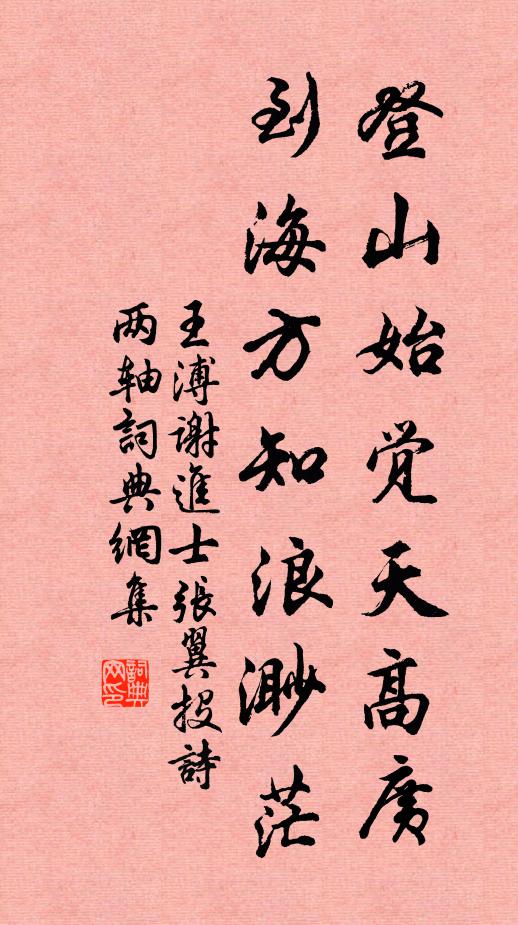 登山始觉天高廣
到海方知浪渺茫
王溥谢進士張翼投詩
两轴詞典網集
詞典网印